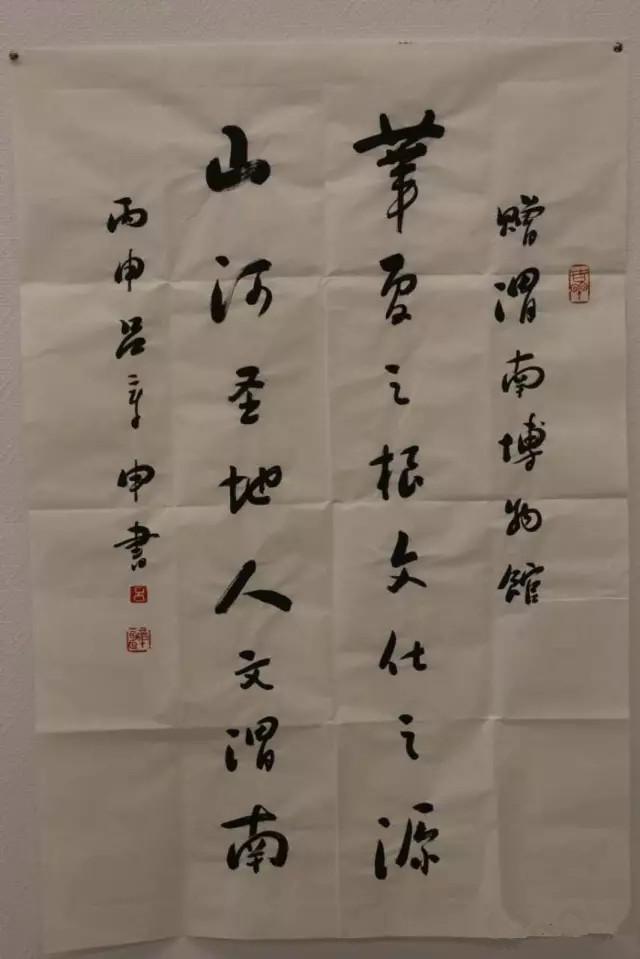 赠渭南博物館
華夏之根文化之源
山河圣地人文渭南
丙申吕章申書